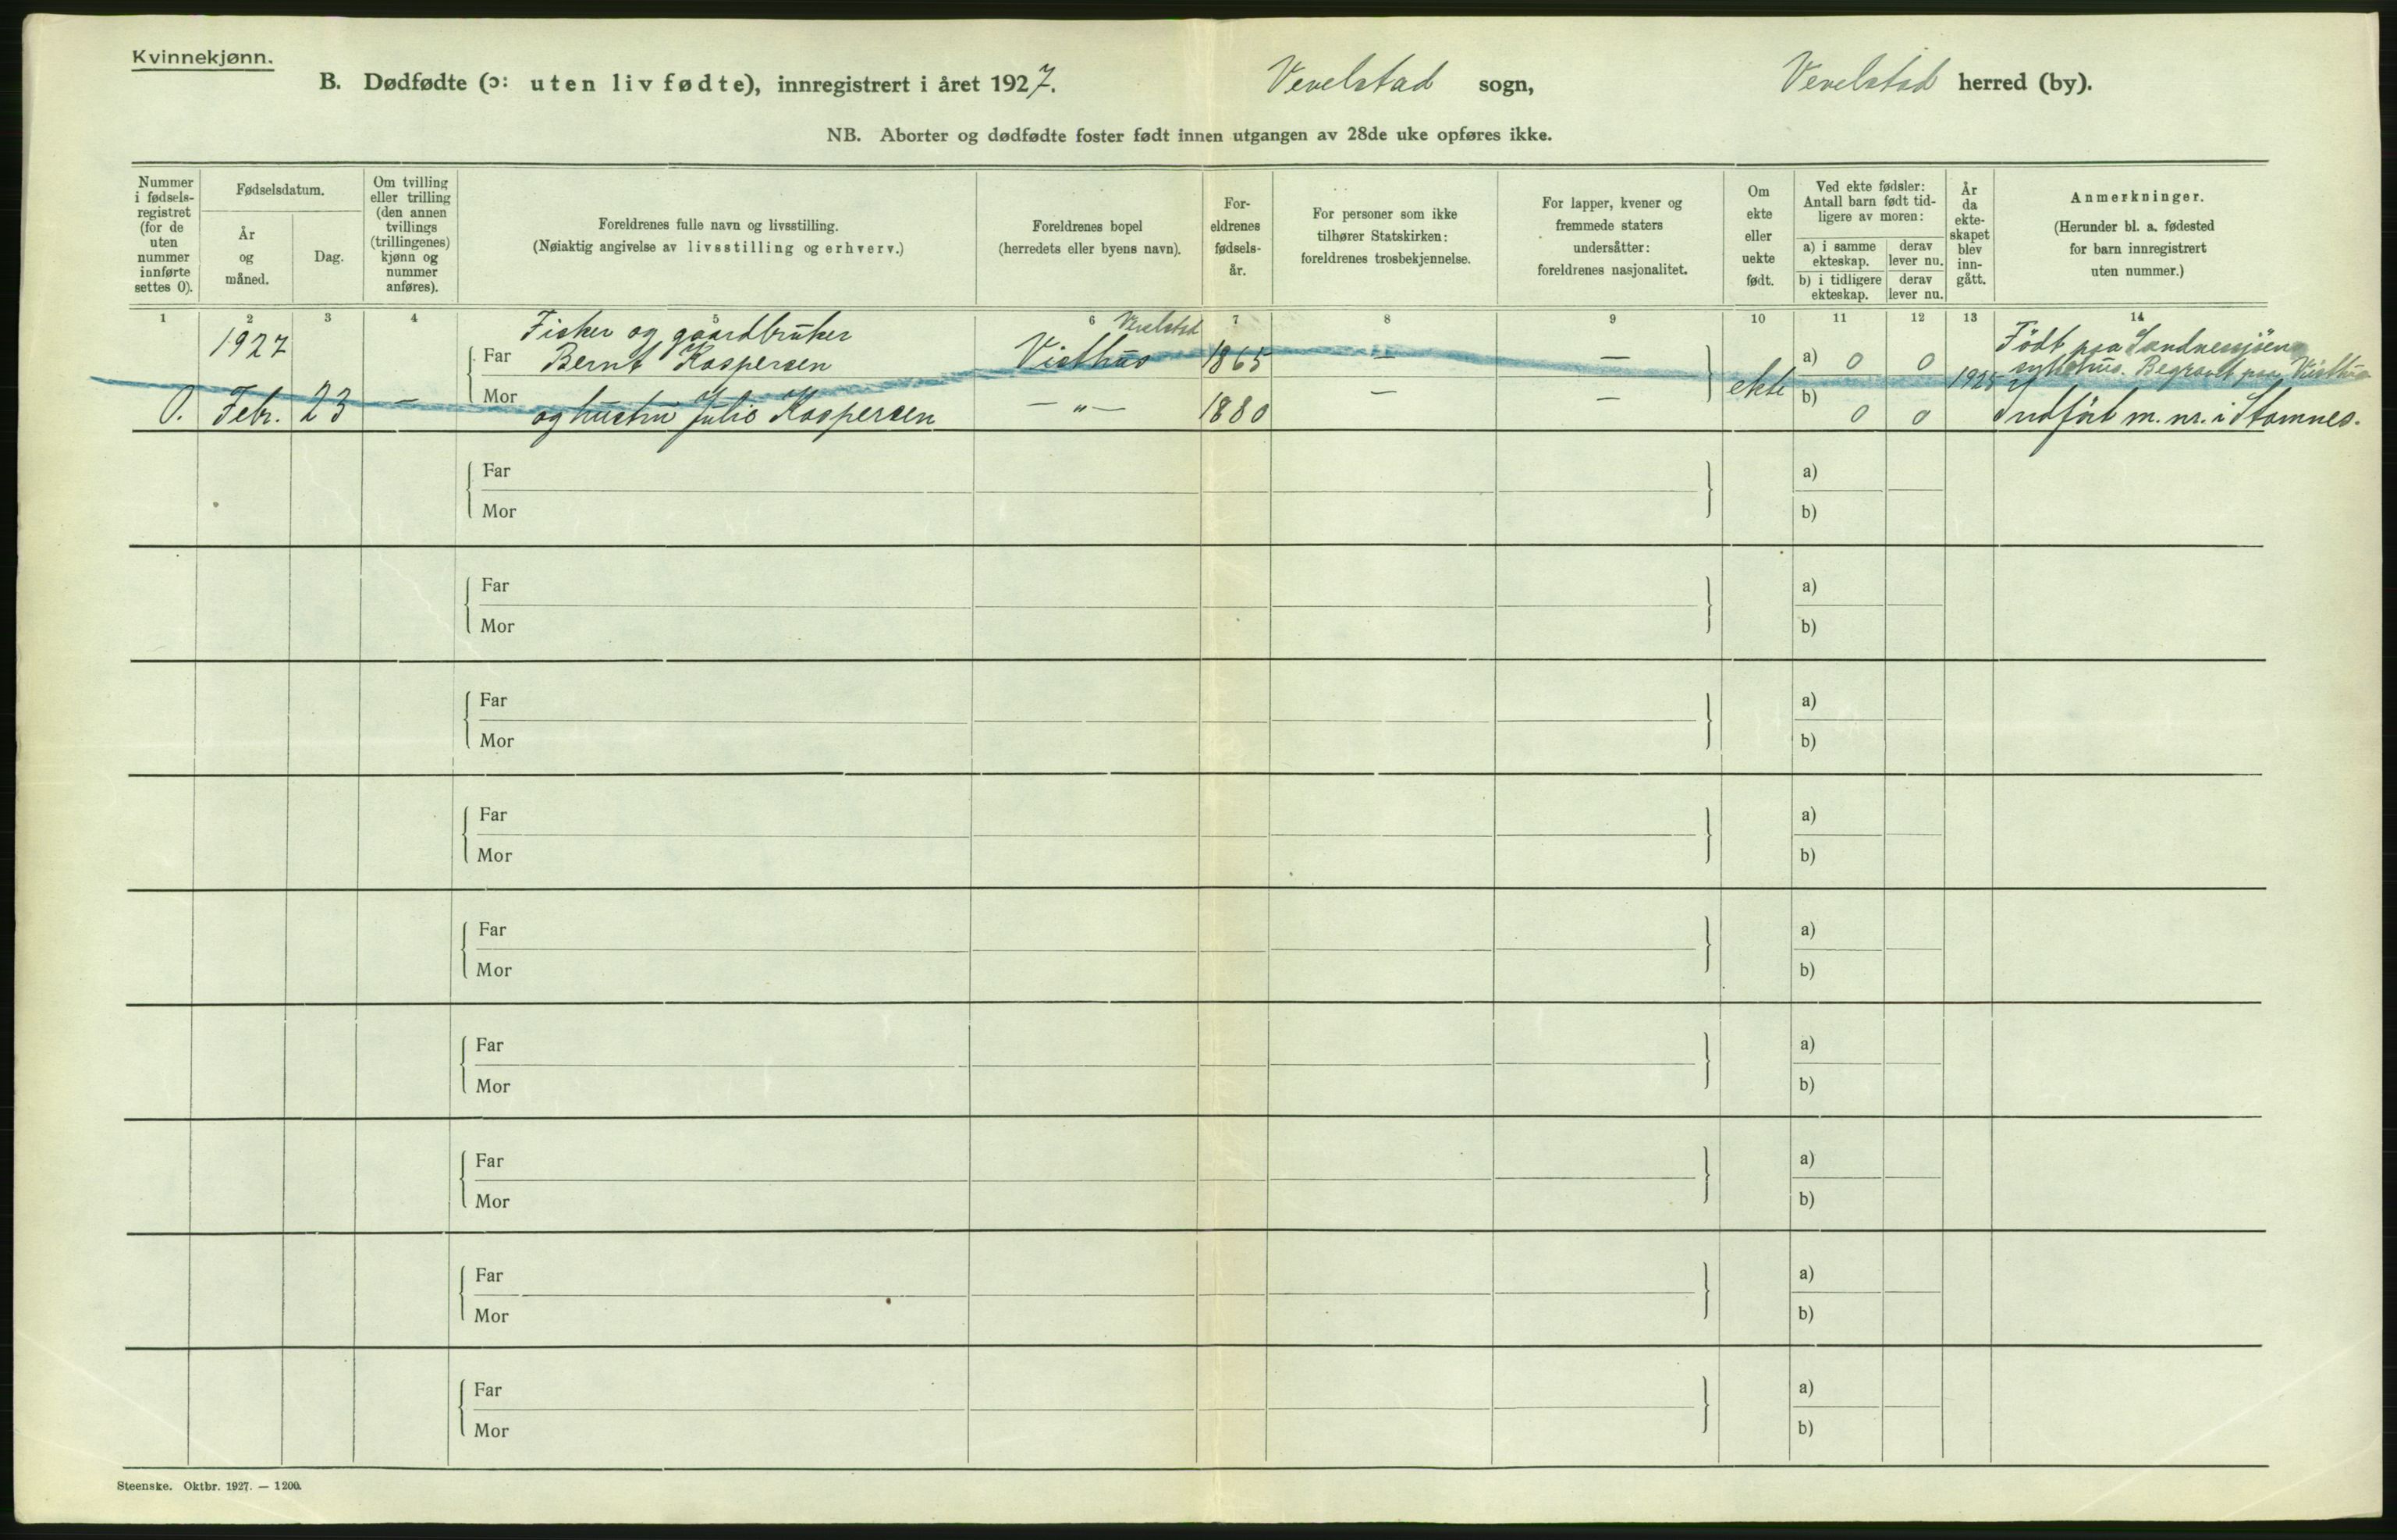 Kvinnekjønn.
B. Dødfødte (ɔ: uten liv fødte), innregistrert i året 1927. Vevelstad sogn, Vevelstad herred (by).
NB. Aborter og dødfødte foster født innen utgangen av 28de uke opføres ikke.
Nummer
i fødsels-
registret
(for de
uten
nummer
innførte
settes 0).
Fødselsdatum.
År
og
måned.
Dag.
Om tvilling
eller trilling
(den annen
tvillings
(trillingenes)
kjønn og
nummer
anføres).
Foreldrenes fulle navn og livsstilling.
(Nøiaktig angivelse av livsstilling og erhverv.)
Foreldrenes bopel
(herredets eller byens navn).
For-
eldrenes
fødsels-
år.
For personer som ikke
tilhører Statskirken:
foreldrenes trosbekjennelse.
For lapper, kvener og
fremmede staters
undersåtter:
foreldrenes nasjonalitet.
Om
ekte
eller
uekte
født.
Ved ekte fødsler:
Antall barn født tid-
ligere av moren:
a) i samme
ekteskap.
derav
lever nu.
b) i tidligere
ekteskap.
derav
lever nu.
År
da
ekte-
skapet
blev
inn-
gått.
Anmerkninger.
(Herunder bl. a. fødested
for barn innregistrert
uten nummer.)
1 2 3 4 5 6 7 8 9 10 11 12 13 14
Fisker og gaardbruker Vevelstad Født paa Sandnessjøen
1927 Far Bernt Kaspersen Visthus 1865 — — a) 0 0 sykehus. Begravet paa Visthus
0. Febr. 23 — Mor og hustru Julie Kaspersen — " — 1880 — — ekte b) 0 0 1925 Indført m. nr. i Stamnes.
Far a)
Mor b)
Far a)
Mor b)
Far a)
Mor b)
Far a)
Mor b)
Far a)
Mor b)
Far a)
Mor b)
Far a)
Mor b)
Far a)
Mor b)
Far a)
Mor b)
Steenske. Oktbr. 1927. — 1200.